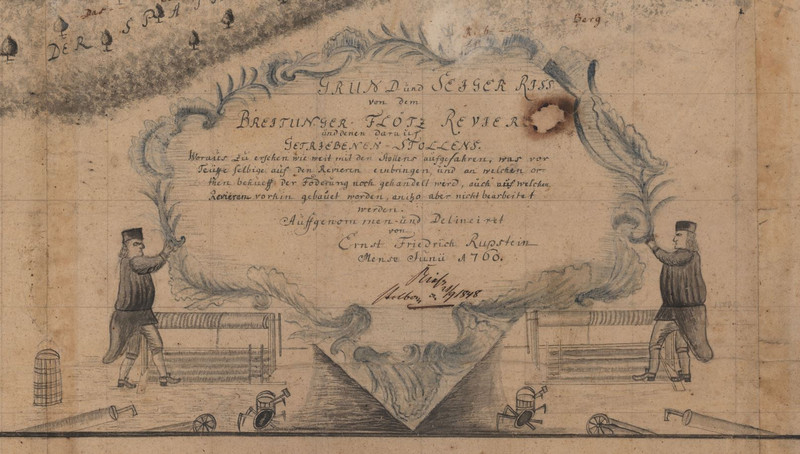 Das
DER
Berg.
GRUND und SEIGER RISS
von dem
BREITUNGER FLÖTZ REVIER
und denen darauf
GETRIEBENEN STOLLENS.
Woraus zu ersehen wie weit mit den Stollens aufgefahren, was vor
Teufe selbige aus den Revieren einbringen, und an welchen or-
then behueff der Föderung noch gehandelt werd, auch auf welchen
Revieren vorhin gebauet worden, anitzo aber nicht bearbeitet
werden.
Auffgenommen und Delineiret
von
Ernst Friedrich Rupstein
Mense Junii 1760.
1848